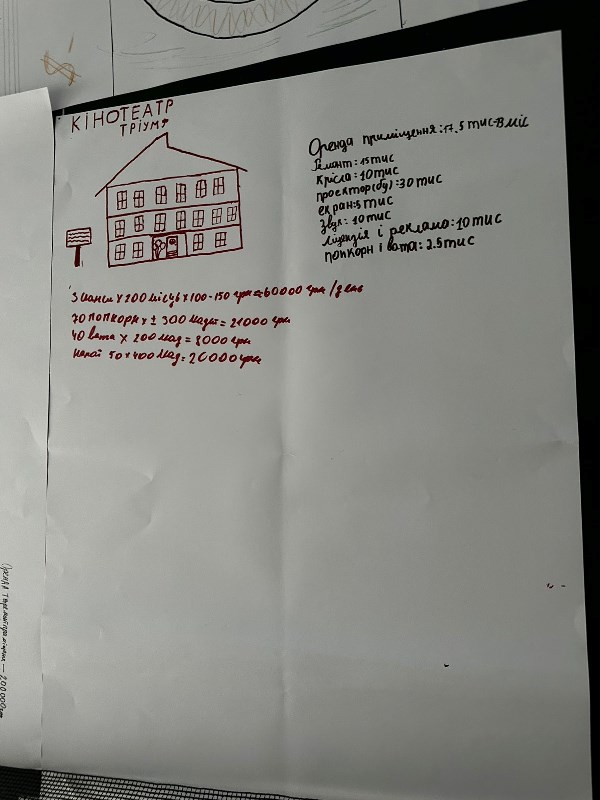 КІНОТЕАТР
ТРІУМФ
Оренда приміщення: 17,5 тис-в міс
Ремонт: 15 тис
Крісла: 10 тис
проектор(бу): 30 тис
екран: 5 тис
Звук: 10 тис
ліцензія і реклама: 10 тис
попкорн і вата: 2.5 тис
3 сеанси х 200 місць х 100-150 грн = 60000 грн / день
70 попкорн х ± 300 = 21000 грн
40 вата х 200 = 8000 грн
напої 50 х 400 = 20000 грн